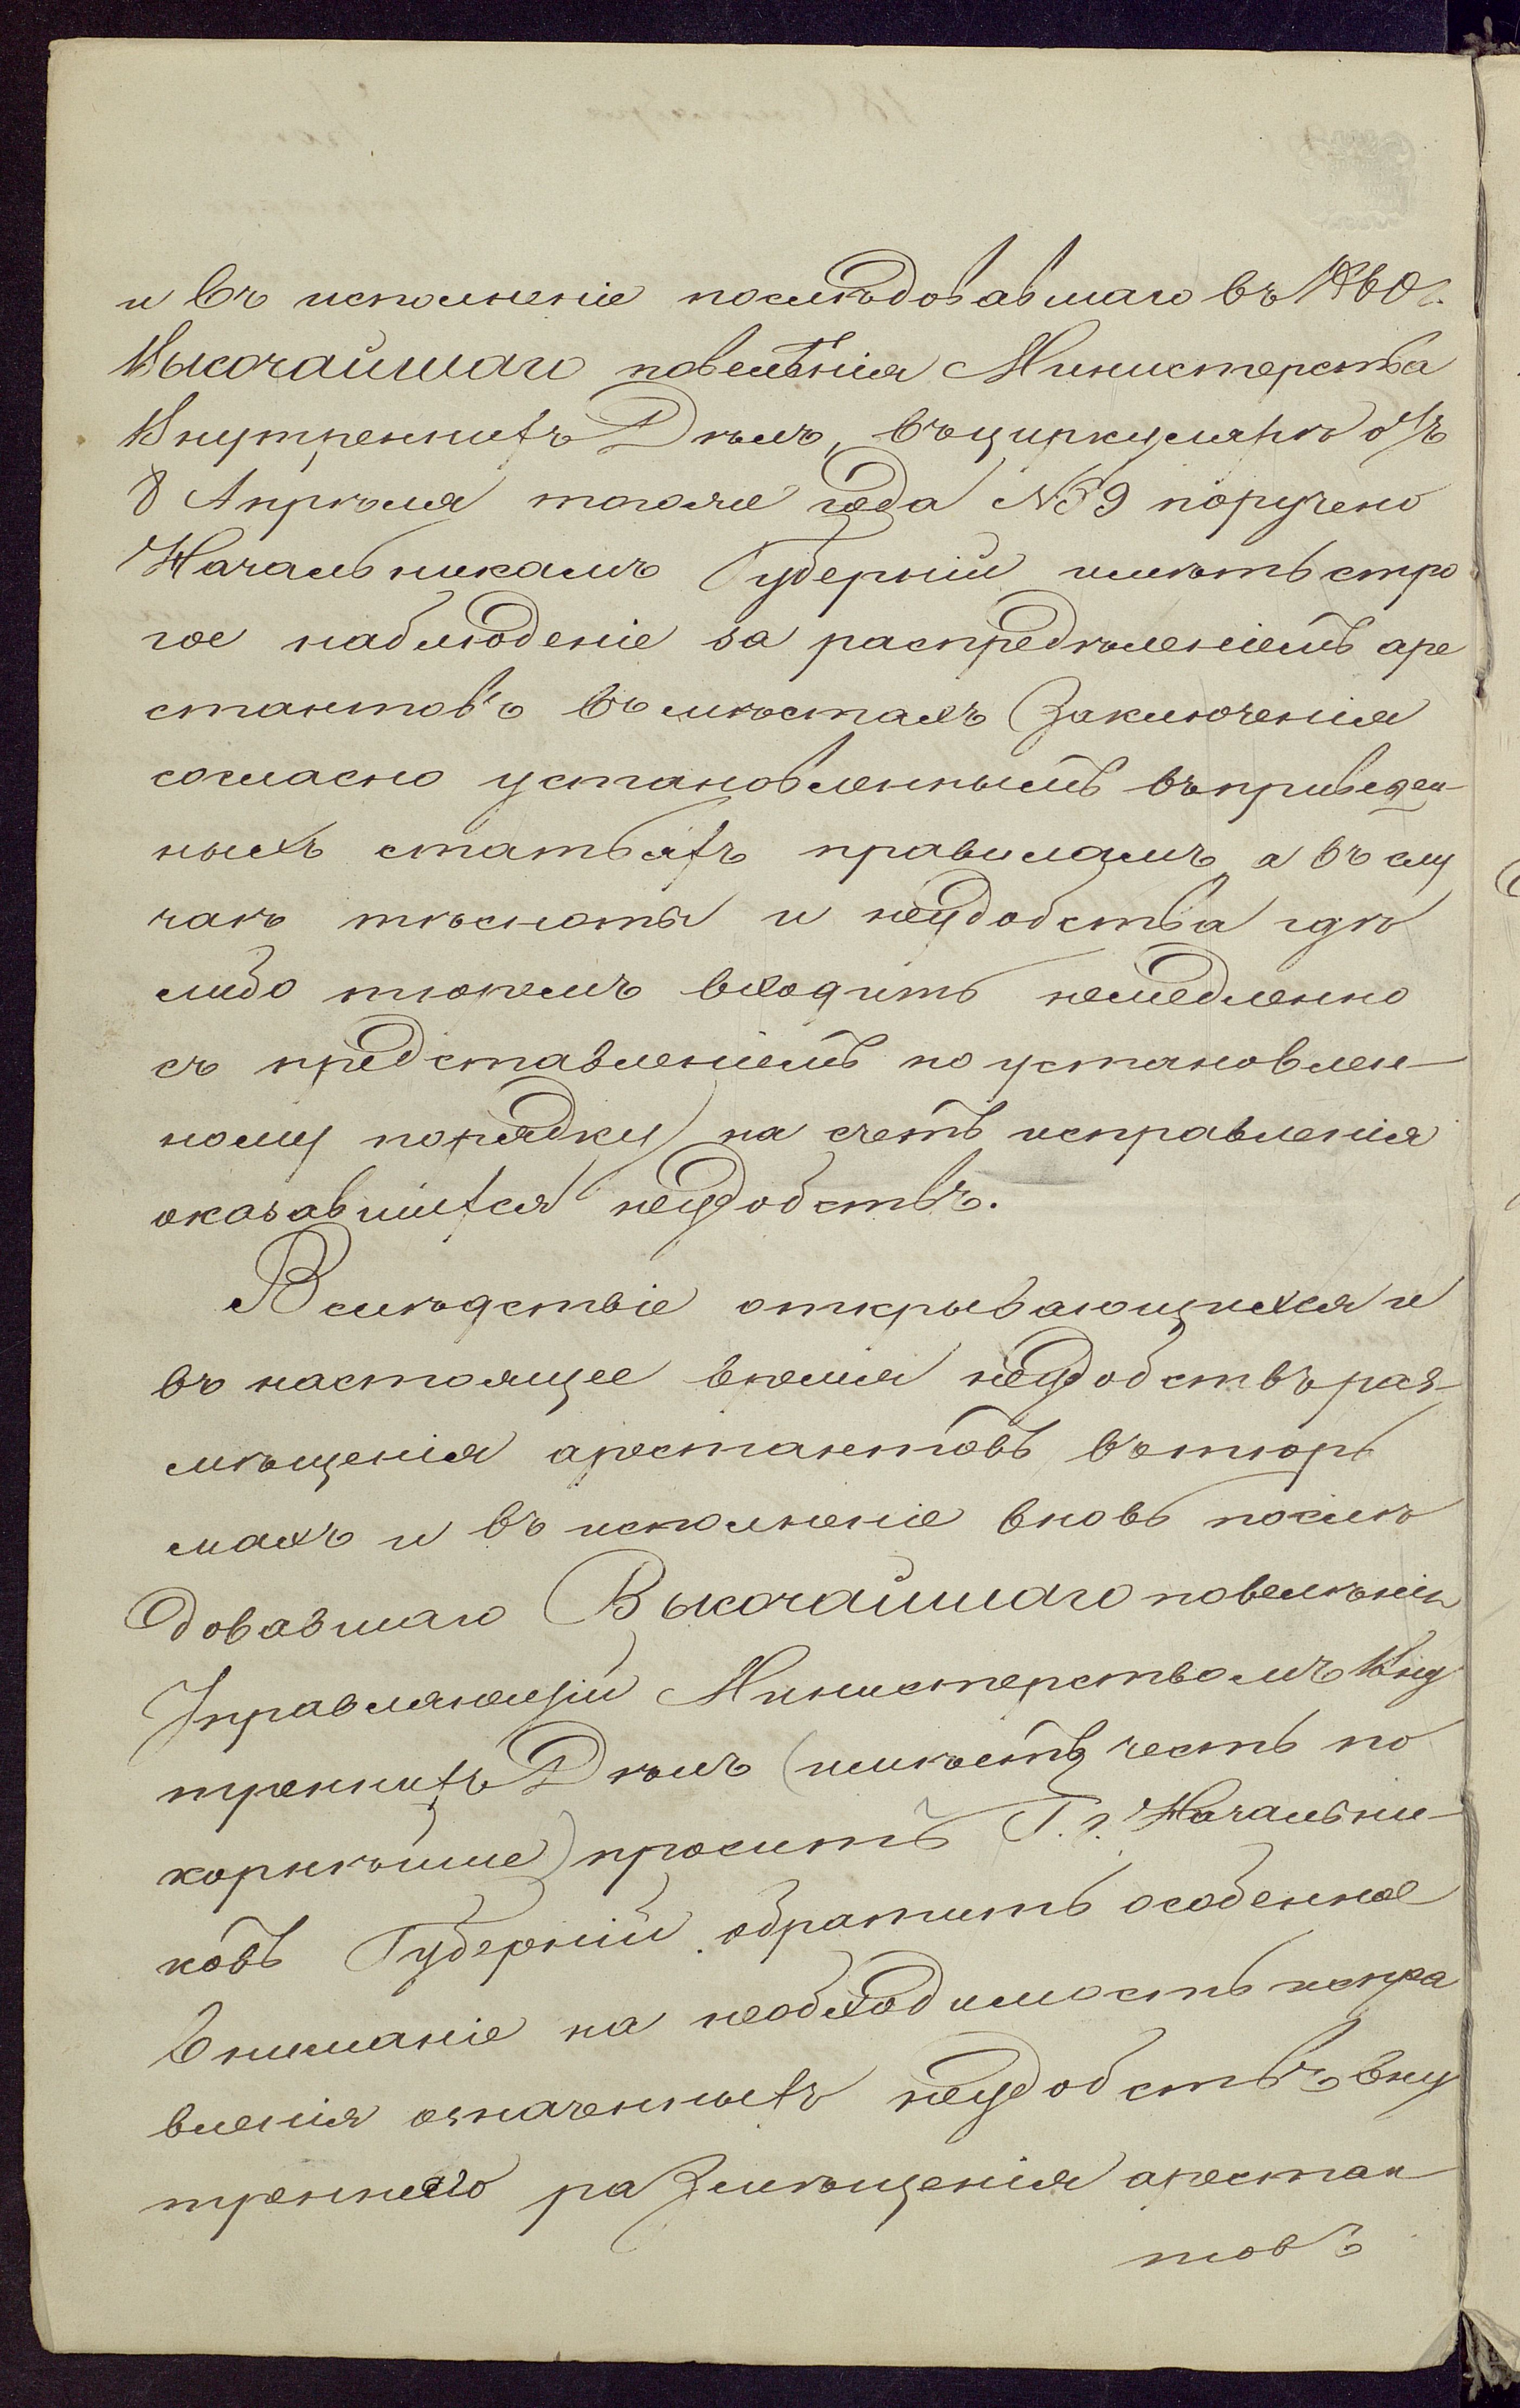 и въ исполненіе послѣдовавшаго въ 1860 г.
Высочайшаго повелѣнія Министерства
Внутреннихъ Дѣлъ, въ циркулярѣ отъ
8 Апрѣля тогоже года № 59 поручено
Начальникамъ Губерній имѣть стро
гое наблюденіе за распредѣленіемъ аре
стантовъ въ мѣстахъ Заключенія
согласно установленнымъ въ приведен-
ныхъ статьяхъ правиламъ, а въ слу
чаѣ тѣсноты и неудобства гдѣ
либо тюремъ входить немедленно
съ представленіемъ по установлен-
ному порядку на счетъ исправленія
оказавшихся неудобствъ.
Вслѣдствіе открывающихся и
въ настоящее время неудобствъ раз-
мѣщенія арестантовъ въ тюрь
махъ и въ исполненіе вновь послѣ
довавшаго Высочайшаго повелѣнія
Управляющій Министерствомъ Вну
треннихъ Дѣлъ имѣетъ честь по
корнѣйше просить Г.г. Начальни-
ковъ Губерній обратить особенное
вниманіе на необходимость испра
вленія означенныхъ неудобствъ вну
тренняго размѣщенія арестан
товъ